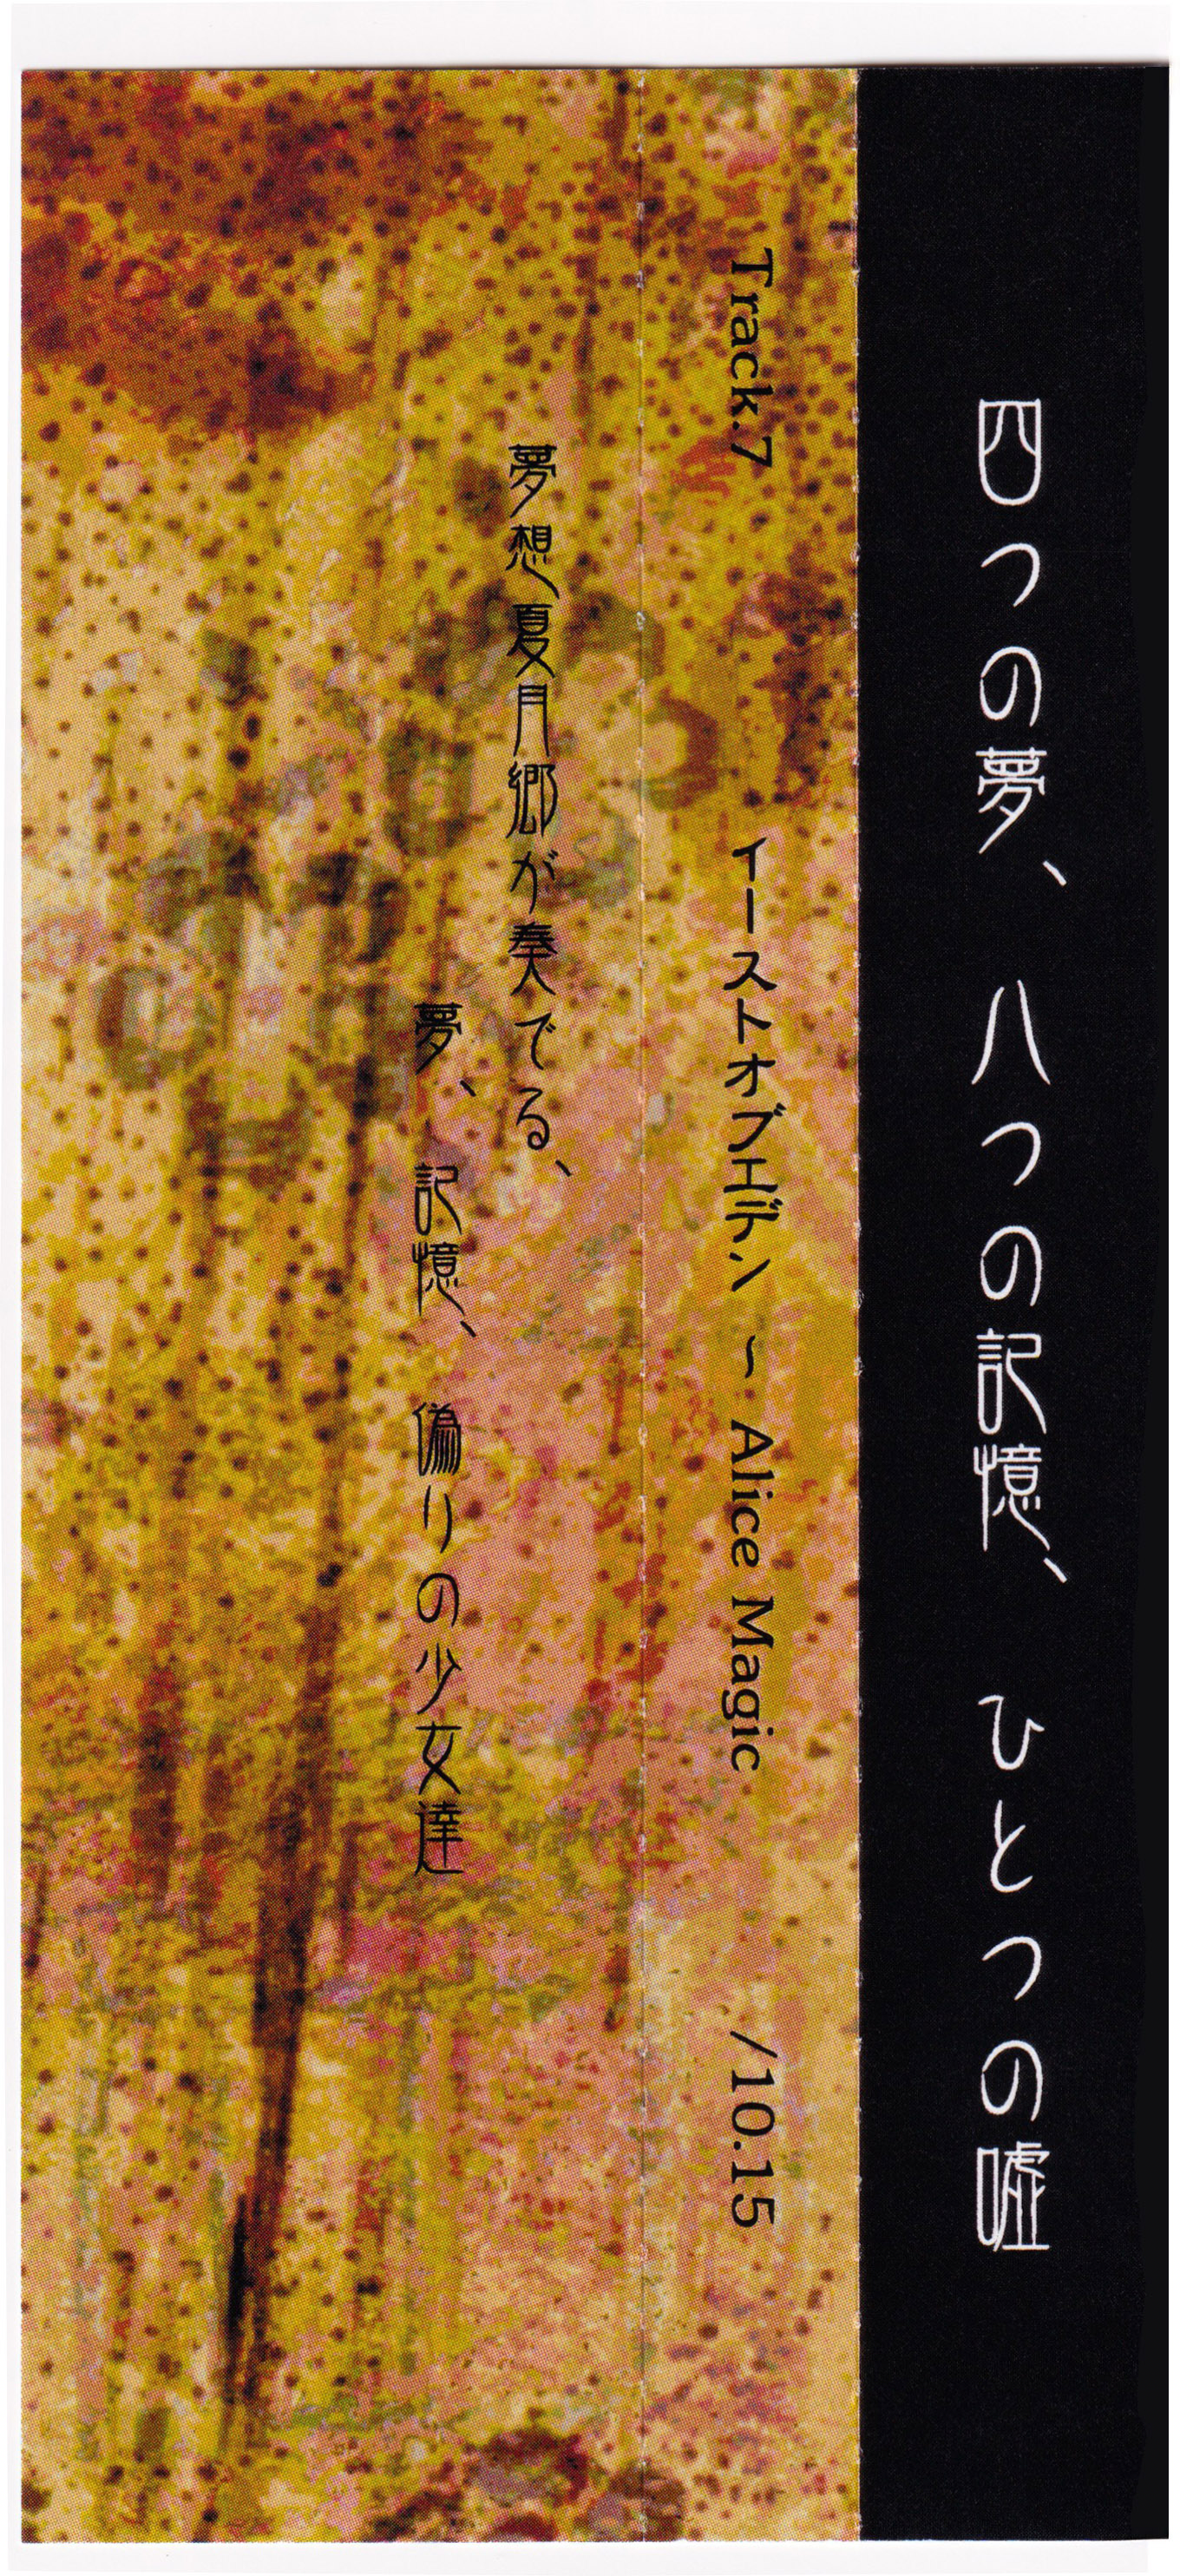 四つの夢、八つの記憶、ひとつの嘘
Track.7 イーストオブエデン ~ Alice Magic /10.15
夢想夏月郷が奏でる、
夢、記憶、偽りの少女達